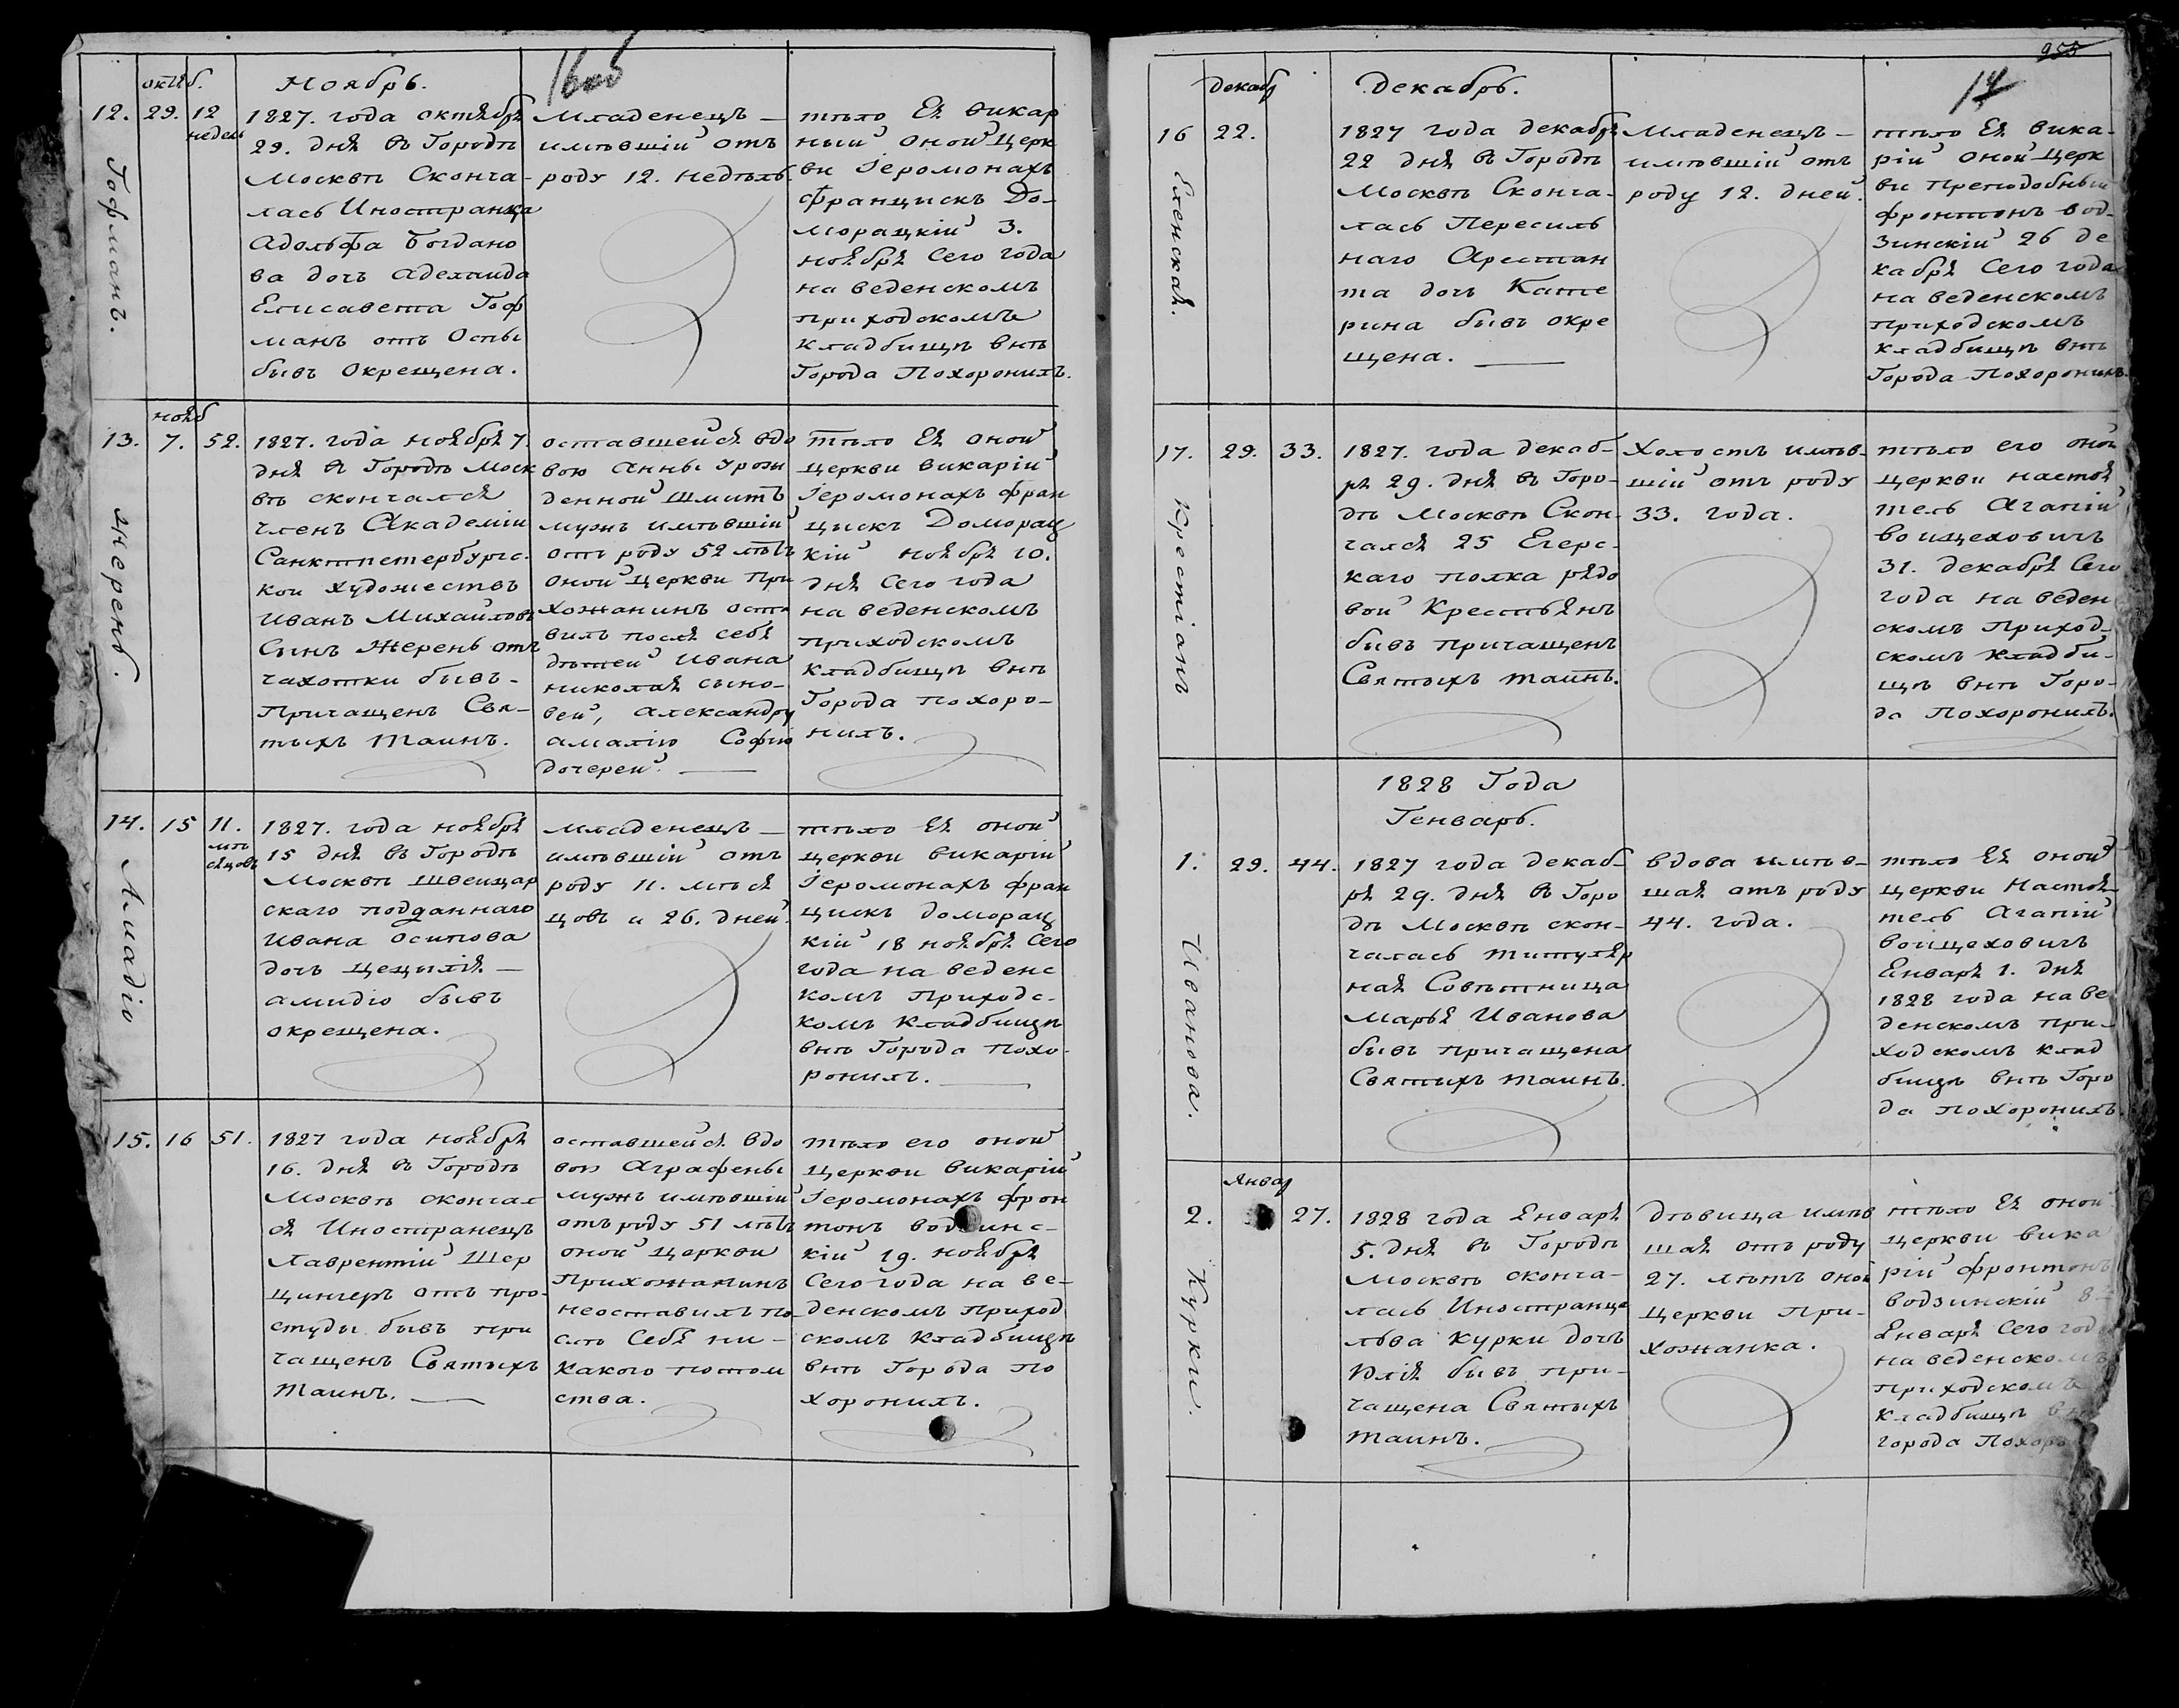 16 об
октяб.
Ноябрь.
12.
29.
12
недель
Гофманъ.
1827. года октября
29. дня въ Городѣ
Москвѣ Сконча-
лась Иностранца
Адольфа Богдано
ва дочь Аделаида
Елисавета Гоф
манъ отъ Оспы
бывъ Окрещена.
Младенецъ —
имѣвшій отъ
роду 12. недѣль.
тѣло Ея викар
ный оной Церк
ви Іеромонахъ
Францискъ До-
морацкій 3.
ноября Сего года
на веденскомъ
приходскомъ
кладбищѣ внѣ
Города Похоронилъ.
нояб
13.
7.
52.
Жеренъ.
1827. года ноября 7.
дня въ Городѣ Моск
вѣ скончался
членъ Академіи
Санктпетербургс.
кои художествъ
Иванъ Михайловъ
Сынъ Жеренъ отъ
чахотки бывъ-
Причащенъ Свя-
тыхъ Таинъ.
оставшейся вдо
вою Анны Урож
денной Шмитъ
мужъ имѣвшій
отъ роду 52 лѣтъ
оной церкви При
хожанинъ оста
вилъ послѣ себя
дѣтей Ивана
николая сыно-
вей, Александру
амалію Софію
дочерей. —
тѣло Ея оной
церкви викарій
Іеромонахъ фран
цискъ Доморац
кій ноября 10.
дня Сего года
на веденскомъ
приходскомъ
Кладбищѣ внѣ
Города похоро-
нилъ.
14.
15
11.
мѣ
сяцовъ
Амадіо
1827. года ноября
15 дня въ Городѣ
Москвѣ швейцар
скаго подданнаго
Ивана осипова
дочь цецилія —
амидіо бывъ
окрещена.
младенецъ —
имѣвшій отъ
роду 11. мѣся
цовъ и 26. дней.
тѣло Ея оной
церкви викарій
Іеромонахъ фран
цискъ доморац
кій 18 ноября Сего
года на веденс
комъ приходс-
комъ Кладбищѣ
внѣ Города похо-
ронилъ. —
15.
16
51.
1827 года ноября
16. дня въ Городѣ
Москвѣ окончал
ся Иностранецъ
Лаврентій Шер
цингеръ отъ про-
студы бывъ при
чащенъ Святыхъ
Таинъ. —
оставшейся вдо
вою Аграфены
мужъ имѣвшій
отъ роду 51 лѣтъ
оной церкви
Прихожанинъ
неоставилъ по-
слѣ Себя ни-
какого потом
ства.
тѣло его оной
Церкви викарій
Іеромонахъ фрон
тонъ водзинс-
кій 19. ноября
Сего года на ве-
денскомъ приход
скомъ кладбищѣ
внѣ Города по
хоронилъ.
955
17
декабр
Декабрь.
16
22.
Еленская.
1827 года декабря
22 дня въ Городѣ
Москвѣ Сконча-
лась Пересиль
наго Арестан
та дочь Кате
рина бывъ окре
щена. —
Младенецъ —
имѣвшій отъ
роду 12. дней.
тѣло Ея вика-
рій оной церк
ви преподобный
фронтонъ вод-
зинскій 26 де
кабря Сего года
на веденскомъ
приходскомъ
кладбищѣ внѣ
Города Похоронилъ.
17.
29.
33.
Крестіанъ
1827. года декаб-
ря 29. дня въ Горо-
дѣ Москвѣ Скон-
чался 25 Егерс-
каго полка рядо
вой Крестьянъ
бывъ причащенъ
Святыхъ таинъ.
Холостъ имѣв-
шій отъ роду
33. года.
тѣло его оной
церкви настоя
тель Агапій
воицеховичъ
31. декабря Сего
года на веден
скомъ Приход-
скомъ Кладби-
щѣ внѣ Горо-
да Похоронилъ.
1828 Года
Генварь.
1.
29.
44.
Иванова.
1827 года декаб-
ря 29. дня въ Горо
дѣ Москвѣ скон-
чалась титуляр
ная Совѣтница
Марья Иванова
бывъ причащена
Святыхъ таинъ.
вдова имѣв-
шая отъ роду
44. года.
тѣло Ея оной
церкви Настоя-
тель Агапій
воицеховичъ
Енваря 1. дня
1828 года на ве
денскомъ при-
ходскомъ клад
бищѣ внѣ Горо
да похоронилъ.
Январ
2.
27.
Курки.
1828 года Енваря
5. дня въ Городѣ
Москвѣ сконча-
лась Иностранца
льва курки дочь
Юлія бывъ при-
чащена Святыхъ
таинъ.
дѣвица имѣв
шая отъ роду
27. лѣтъ оной
Церкви При-
хожанка.
тѣло Ея оной
церкви вика
рій фронтонъ
водзинскій 8
Енваря Сего года
на веденскомъ
приходскомъ
кладбищѣ
города